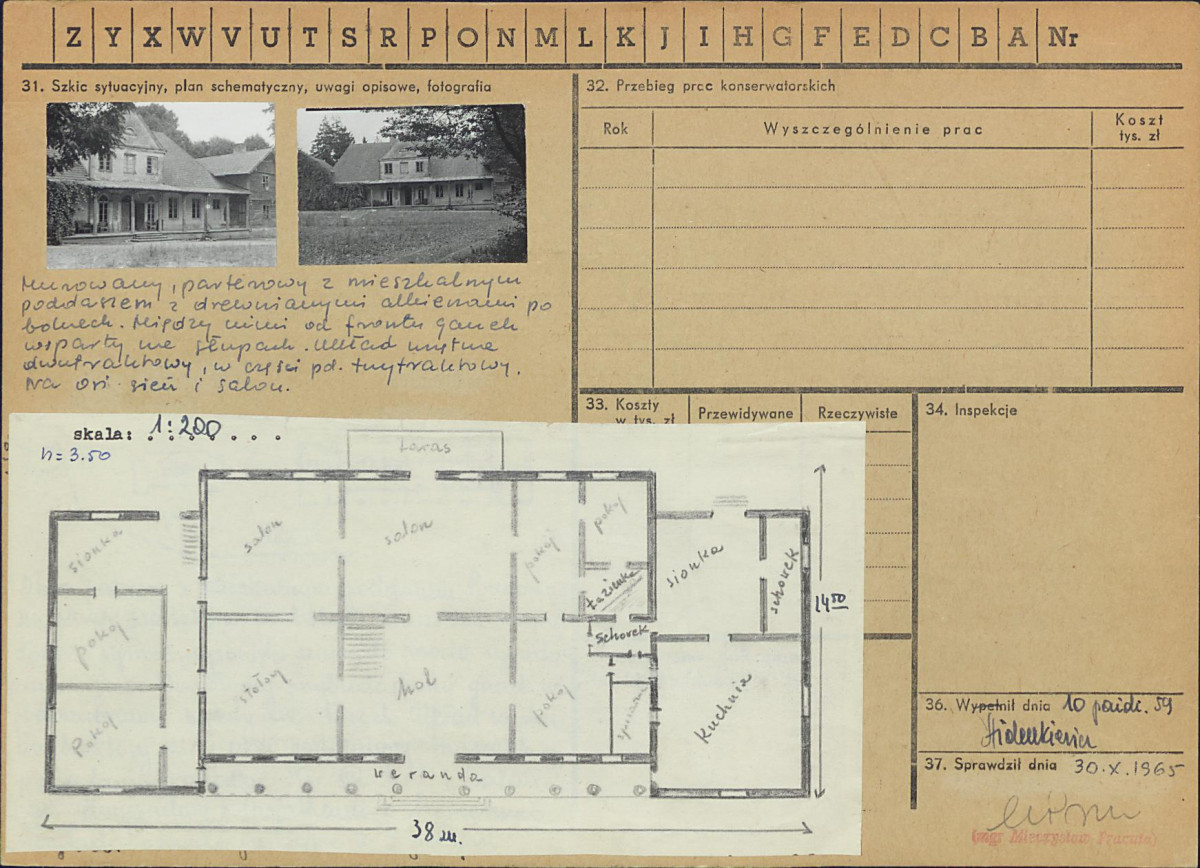 Z Y X W V U T S R P O N M L K J I H G F E D C B A Nr
31. Szkic sytuacyjny, plan schematyczny, uwagi opisowe, fotografia
Murowany, parterowy z mieszkalnym
poddaszem z drewnianymi alkierzami po
bokach. Między nimi od frontu ganek
wsparty na słupach. Układ wnętrza
dwutraktowy, w części pd. trzytraktowy.
Na osi sień i salon.
32. Przebieg prac konserwatorskich
Rok
Wyszczególnienie prac
Koszt
tys. zł
33. Koszty
w tys. zł
Przewidywane
Rzeczywiste
34. Inspekcje
36. Wypełnił dnia 10 paźdz. 59
37. Sprawdził dnia 30.X.1965
(mgr Mieczysław
skala: 1:200
h=3.50
taras
sionka
salon
salon
pokój
pokój
łazienka
sionka
schowek
schowek
pokój
pokój
stołowy
hol
pokój
kuchnia
weranda
14⁵⁰
38 m.